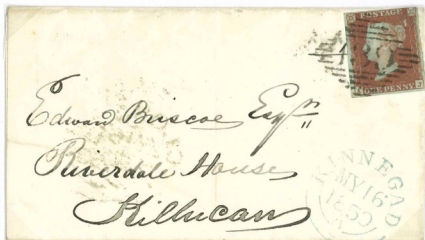 POSTAGE
ONE PENNY
Edward Briscoe Esqre
Riverdale House
Killucan
KINNEGAD
MY 16
1850